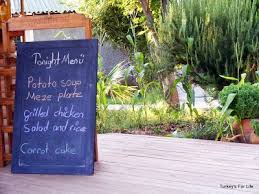 Tonight Menü
Potato soup
Meze platz
grilled chicken
Salad and rice
Carrot cake
Turkey's For Life